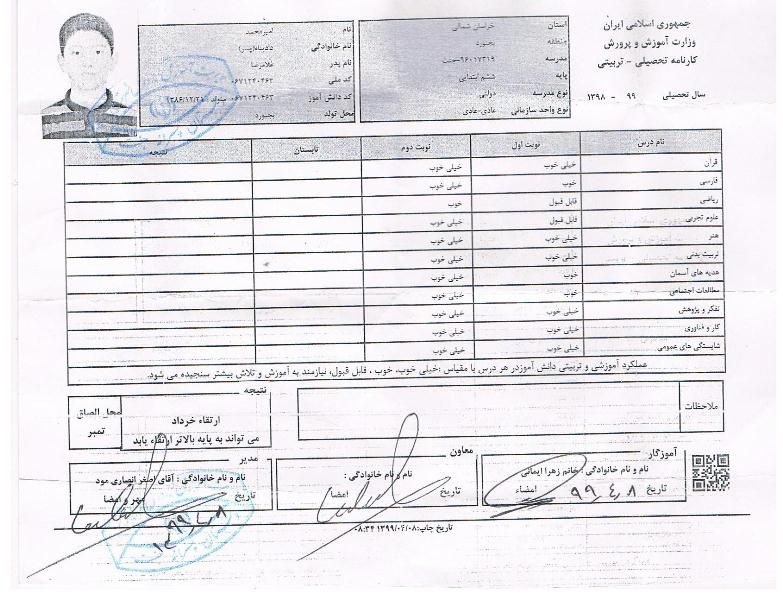 جمهوری اسلامی ایران
وزارت آموزش و پرورش
کارنامه تحصیلی - تربیتی
سال تحصیلی ۹۹ - ۱۳۹۸
استان خراسان شمالی
منطقه بجنورد
مدرسه ۹۶۰۱۷۳۱۹
پایه ششم ابتدایی
نوع مدرسه دولتی
نوع واحد سازمانی عادی-عادی
نام امیرمحمد
نام خانوادگی
نام پدر غلامرضا
کد ملی ۰۶۷۱۲۴۰۴۶۳
کد دانش آموز ۰۶۷۱۲۴۰۴۶۳ متولد ۱۳۸۶/۱۲/۲۱
محل تولد بجنورد
نام درس نوبت اول نوبت دوم تابستان نتیجه
قرآن خیلی خوب خیلی خوب
فارسی خوب خیلی خوب
ریاضی قابل قبول خوب
علوم تجربی قابل قبول خیلی خوب
هنر خیلی خوب خیلی خوب
تربیت بدنی خیلی خوب خیلی خوب
هدیه های آسمان خوب خیلی خوب
مطالعات اجتماعی خوب خیلی خوب
تفکر و پژوهش خیلی خوب خیلی خوب
کار و فناوری خیلی خوب خیلی خوب
شایستگی های عمومی خیلی خوب خیلی خوب
عملکرد آموزشی و تربیتی دانش آموزدر هر درس با مقیاس :خیلی خوب، خوب ، قابل قبول، نیازمند به آموزش و تلاش بیشتر سنجیده می شود.
ملاحظات
نتیجه
ارتقاء خرداد
می تواند به پایه بالاتر ارتقاء یابد
محل الصاق
تمبر
آموزگار
نام و نام خانوادگی : خانم زهرا ایمانی
تاریخ ۹۹/۴/۸ امضاء
معاون
نام و نام خانوادگی :
تاریخ امضا
مدیر
نام و نام خانوادگی : آقای اصغر انصاری مود
تاریخ مهر و امضا
۹۹/۰۸
تاریخ چاپ:۱۳۹۹/۰۶/۰۸ ۰۸:۳۴